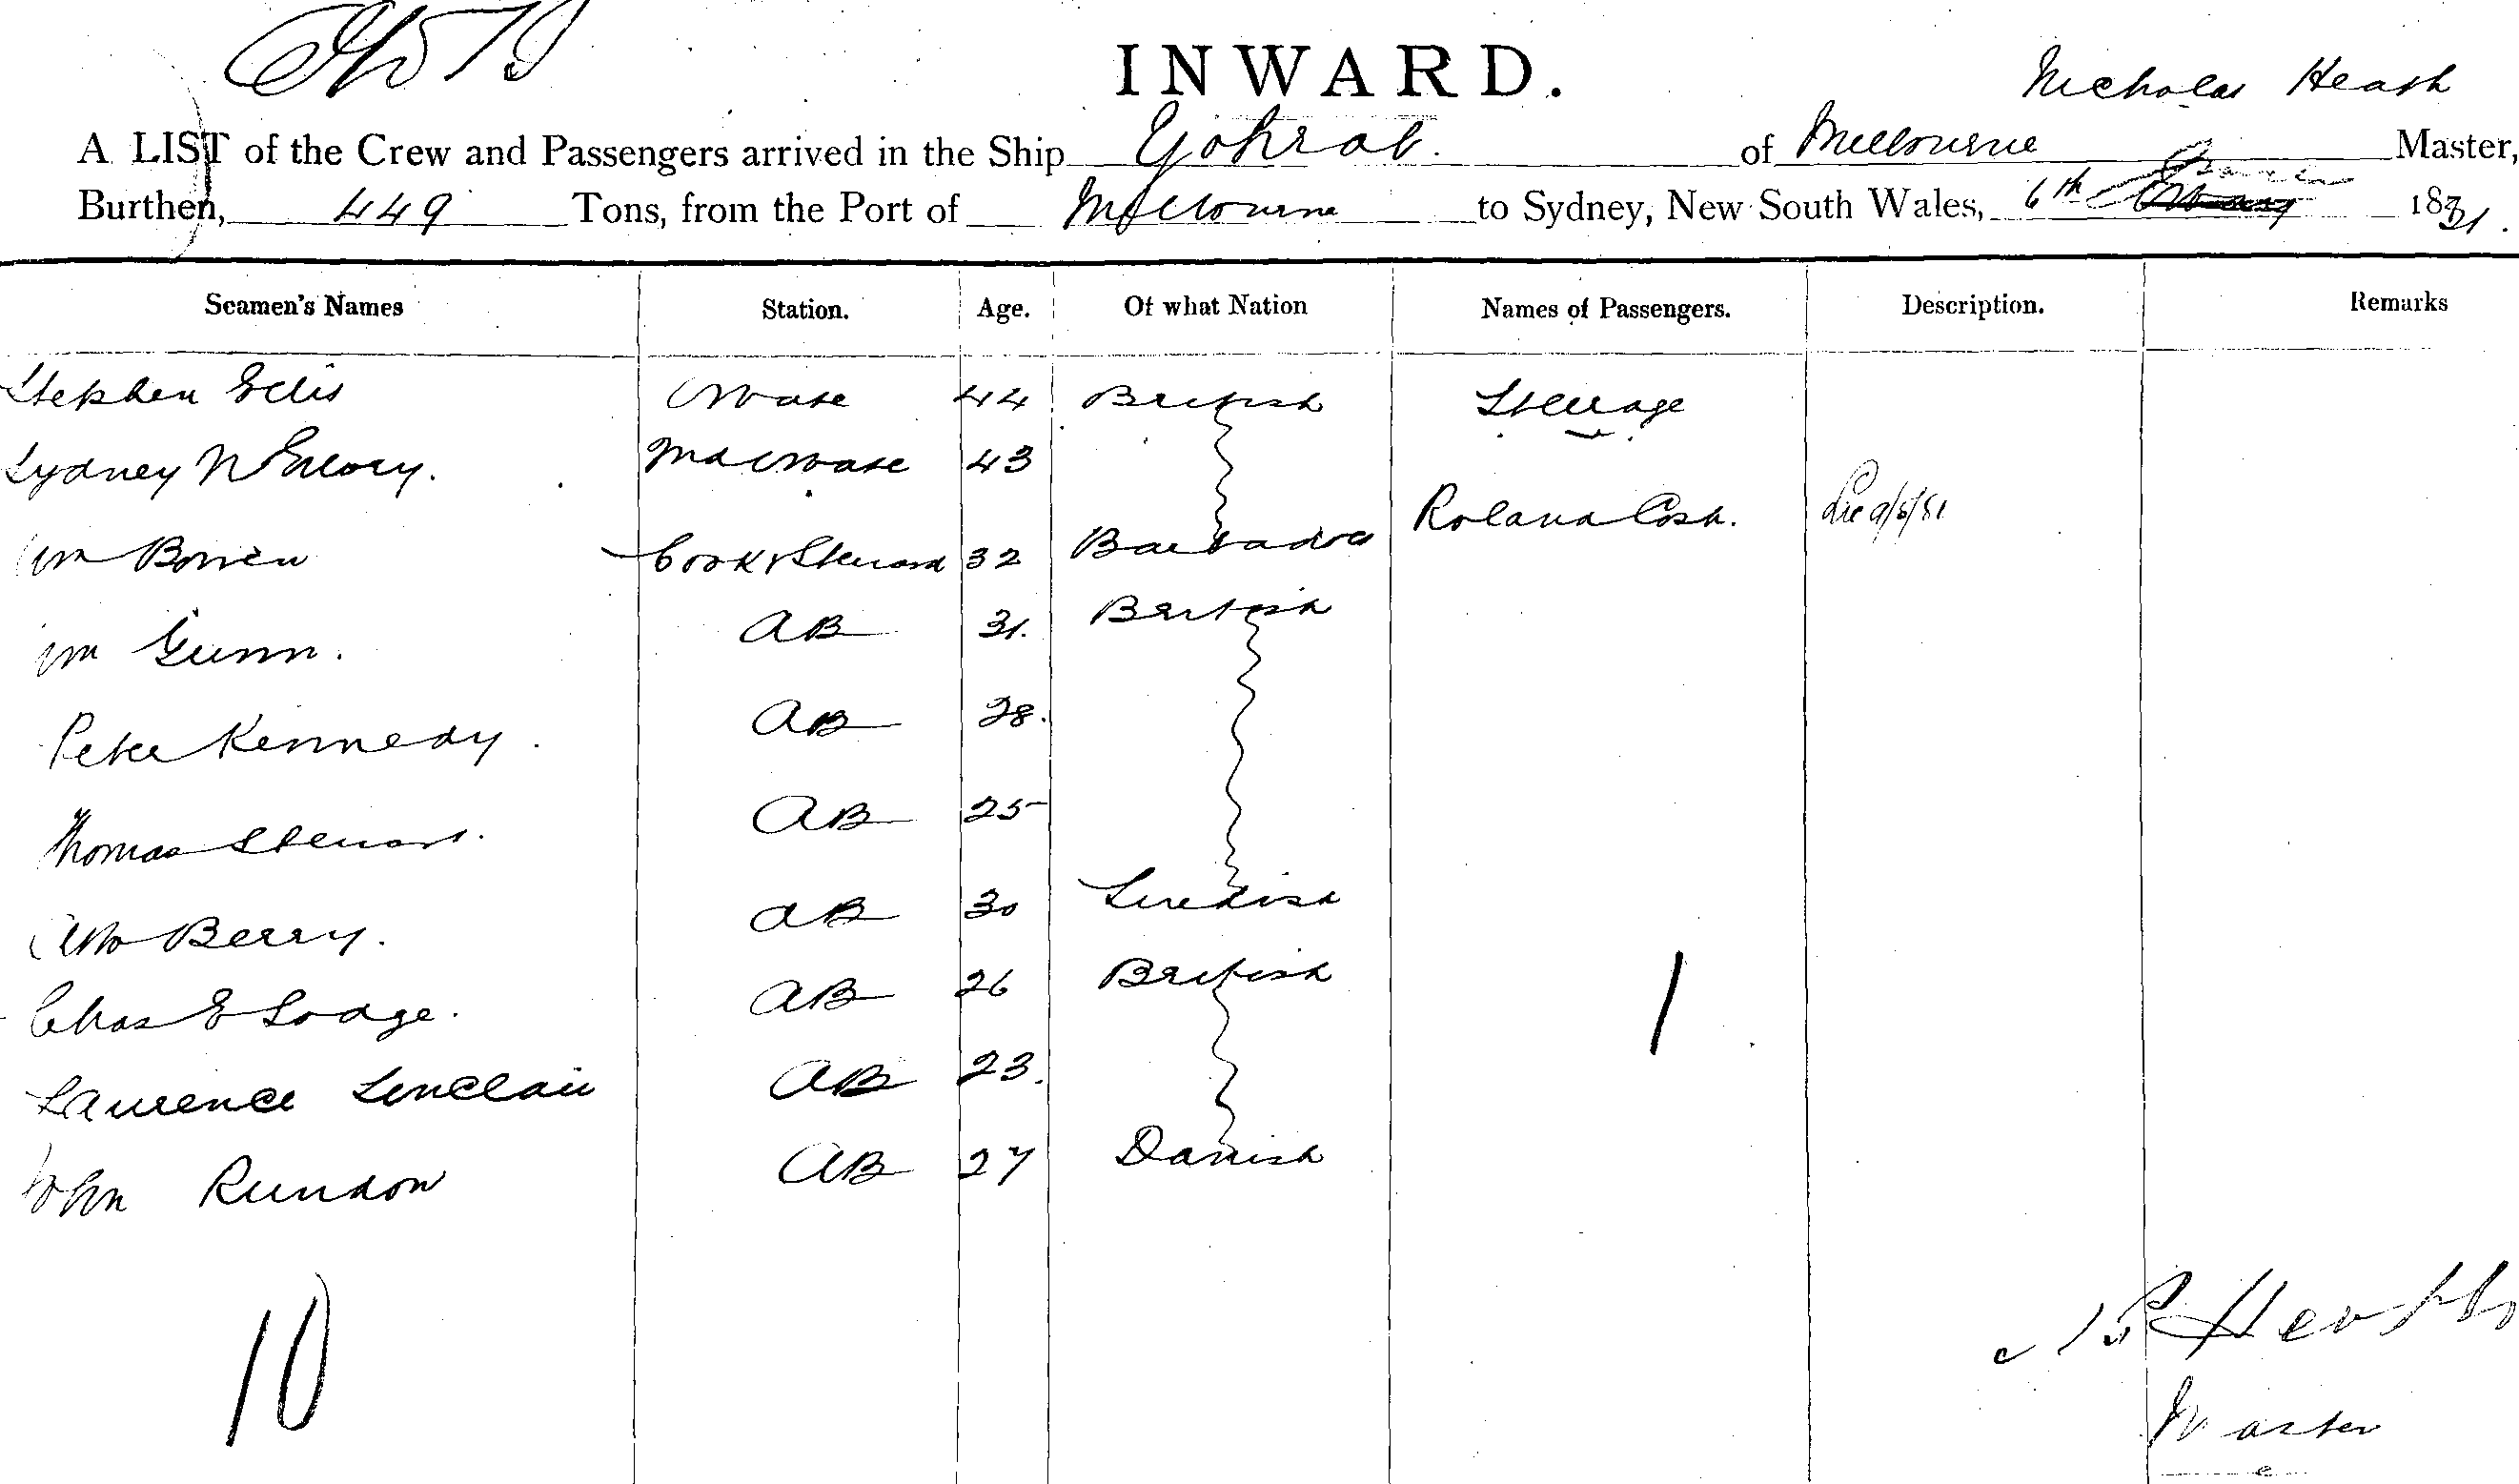 INWARD.
Nicholas Heath
A LIST of the Crew and Passengers arrived in the Ship of Melbourne Master,
Burthen, 449 Tons, from the Port of Melbourne to Sydney, New South Wales, 6th 18
Seamen's Names Station. Age. Of what Nation Names of Passengers. Description. Remarks
Stephen Ellis Mate 44 British Steerage
Sydney 43
Roland Cosh.
Wm Bowen Cook & Steward 32 Barbados
Wm Gunn. AB 31. British
Peter Kennedy. AB 28.
Thomas Stewart. AB 25
Otto Berry. AB 30 Swedish
Chas E Lodge. AB 26 British
1
Laurence Sinclair AB 23.
John Rundon AB 27 Danish
10
Heath
Master